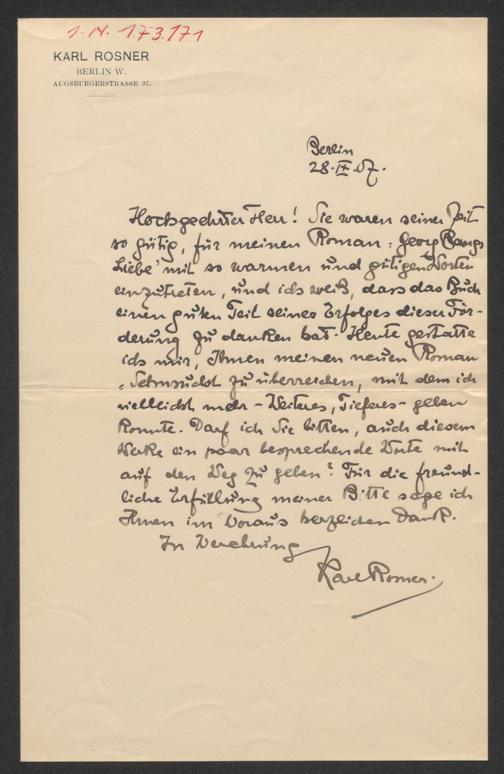 I.N. 173.171
KARL ROSNER
BERLIN W.
AUGSBURGERSTRASSE 97.
Berlin
28. IX. 07.
Hochgeehrter Herr! Sie waren seiner Zeit
so gütig, für meinen Roman: „Georg Bangs
Liebe“ mit so warmen und gütigen Worten
einzutreten, und ich weiß, dass das Buch
einen guten Teil seines Erfolges dieser För-
derung zu danken hat. Heute gestatte
ich mir, Ihnen meinen neuen Roman
„Sehnsucht“ zu überreichen, mit dem ich
vielleicht mehr – Weiteres, Tieferes – geben
konnte. Darf ich Sie bitten, auch diesem
Werke ein paar besprechende Worte mit
auf den Weg zu geben? Für die freund-
liche Erfüllung meiner Bitte sage ich
Ihnen im Voraus herzlichen Dank.
In Verehrung
Karl Rosner.